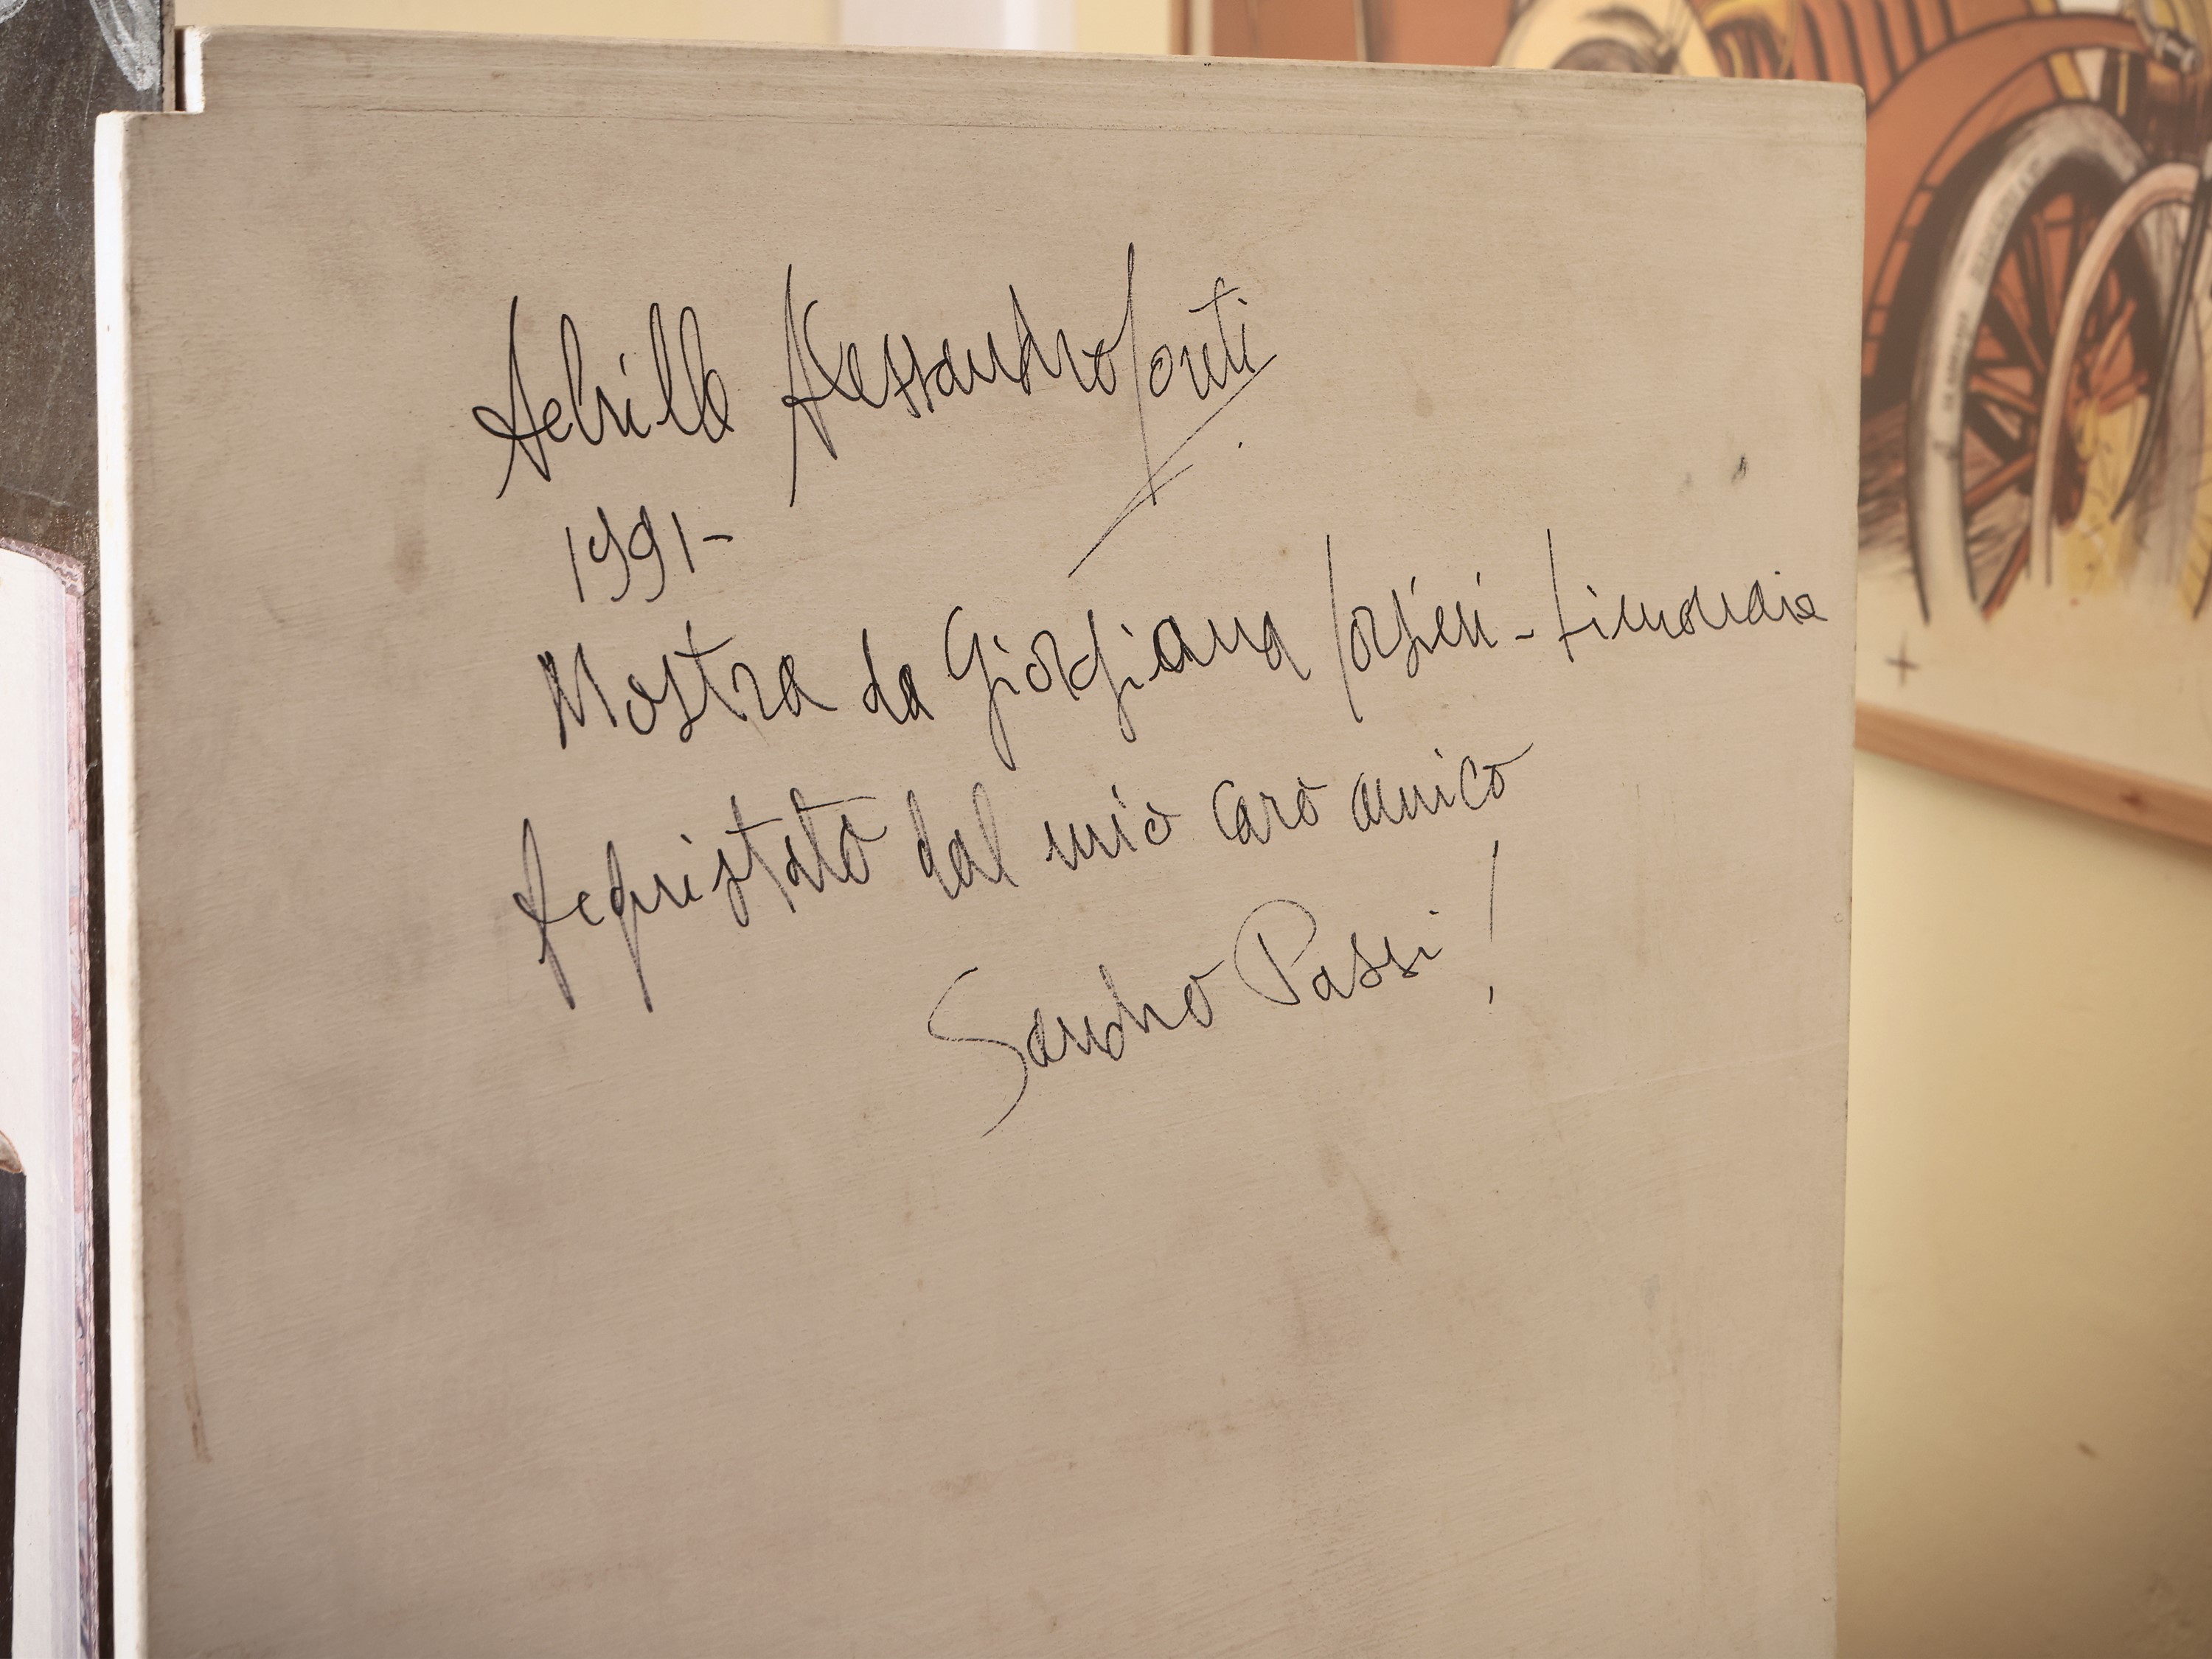 Achille Alessandro Conti
1991-
Mostra da Giorgiana
Acquistato dal mio caro amico
Sandro Passi!